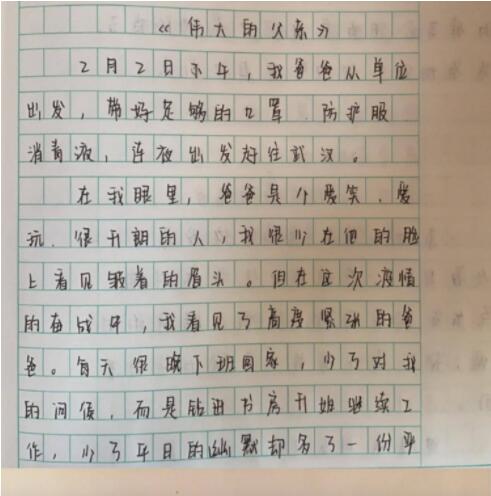 《伟大的父亲》
2月2日下午，我爸爸从单位
出发，带好足够的口罩、防护服
消毒液，连夜出发好往武汉。
在我眼里，爸爸是个爱笑、爱
玩、很开朗的人，我很少在他的脸
上看见皱着的眉头。但在这次疫情
的奋战中，我看见了高度紧张的爸
爸。每天很晚下班回家，少了对我
的问候，而是钻进书房开始继续工
作，少了平日的幽默却多了一份严